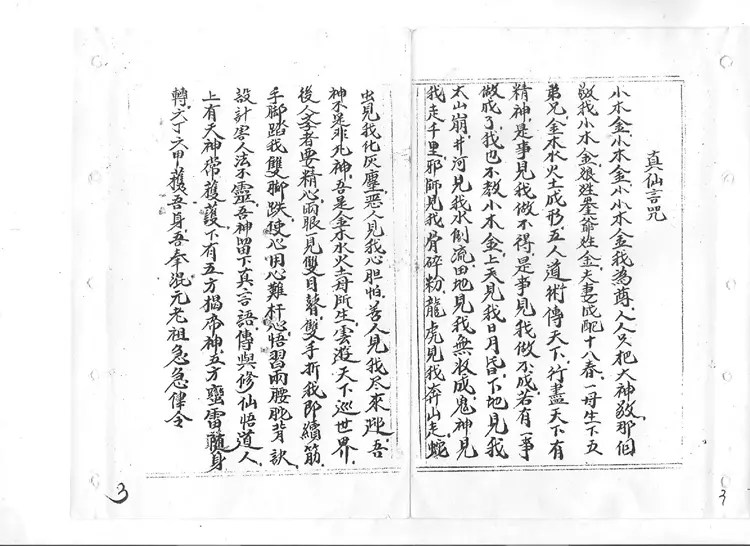 真仙言咒
小木金.小木金.小小木金.我為尊.人人只把大神敬.那個
敬我小木金.娘姓爺姓金.夫妻成配十八春.一母生下五
弟兄.金木水火土成形.五人道術傳天下.行盡天下有
精神.是事見我做不得.是事見我做不成.若有一事
做成了.我也不教小木金.上天見我日月昏.下地見我
太山崩.井河見我水倒流.田地見我無收成.鬼神見
我走千里.邪師見我骨碎粉.龍虎見我奔山走.蛇
虫見我化灰塵.惡人見我心胆怕.善人見我尽來迎.吾
神不是非凡神.吾是金木水火土母所生.雲遊天下巡世界.
後人字者要精心.兩眼一見雙目瞽.雙手折我即續筋.
手脚踏我雙脚跌.使心用心難杆心.悟習兩腰駝背.訣
設計害人法不靈.吾神留下真言語.傳與修仙悟道人.
上有天神常護.下有五方揭帝神.五方蠻雷隨身
轉.六丁六甲護吾身.吾奉混元老祖急急律令
3
3